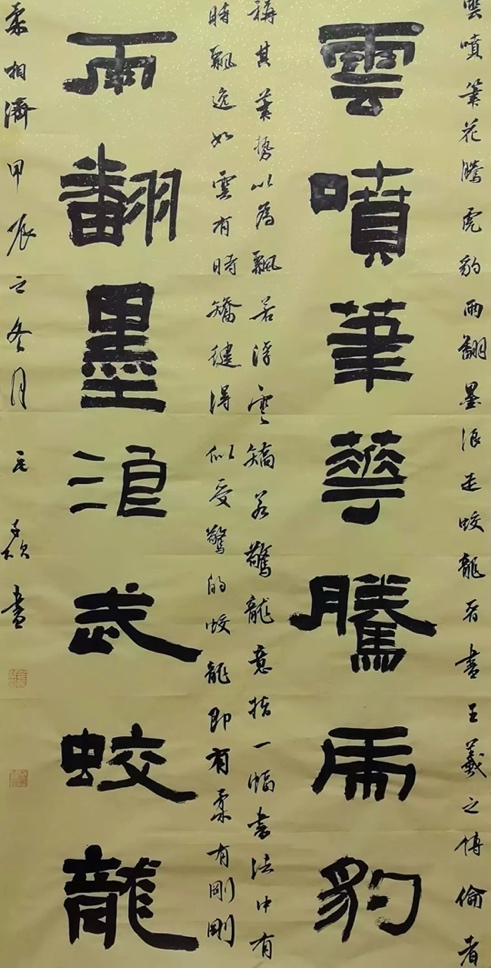 雲噴筆花騰虎豹雨翻墨浪走蛟龍晉書王羲之傳論者
雲噴筆華騰虎豹
稱其筆勢以為飄若浮雲矯若驚龍意指一幅書法中有
時飄逸如雲有時矯健得似受驚的蛟龍即有柔有剛剛
雨翻墨浪走蛟龍
柔相濟甲辰之冬月書